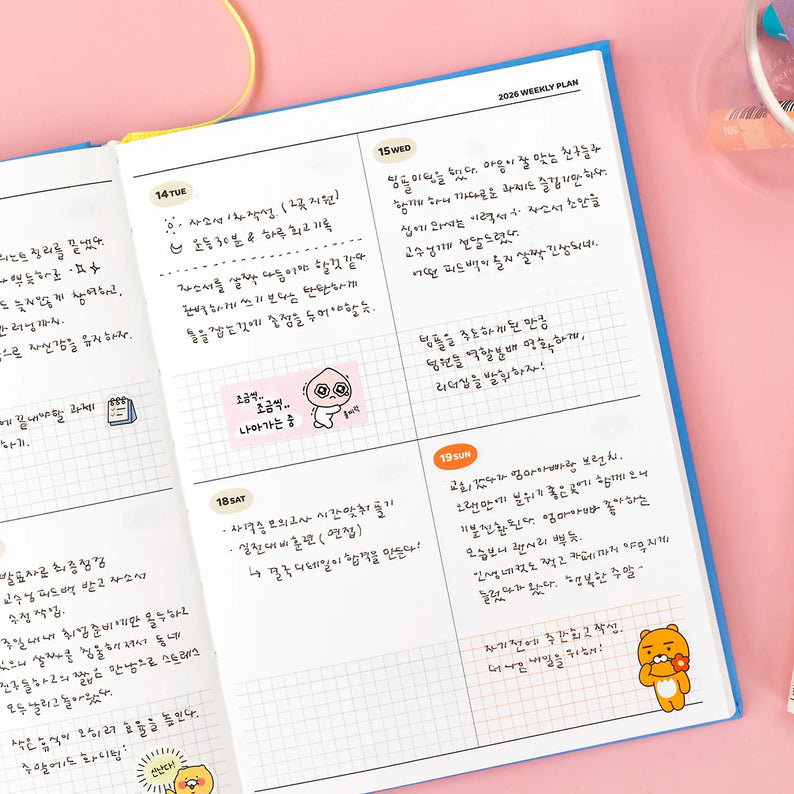 2026 WEEKLY PLAN
리노트정리를 끝냈다.
뿌듯하군
도 늦지않게 참여하고,
러닝까지.
으로 자신감을 유지하자.
에 끝내야할 과제
하기.
14 TUE
자소서 1차작성. (2곳지원)
운동30분 & 하루회고기록
자소서를 살짝 다듬어야 할것 같다
완벽하게 쓰기 보다는 탄탄하게
틀을잡는것에 중점을 두어야할듯.
조금씩..
조금씩..
나아가는 중
15 WED
팀플 미팅을 했다. 마음이 잘 맞는 친구들과
함께 하니 까다로운 과제도 즐겁기만하다.
집에 와서는 이력서 & 자소서 초안을
교수님께 전달드렸다.
어떤 피드백이올지 살짝긴장되네.
팀플을 주도하게된 만큼
팀원들 역할분배 명확하게,
리더십을 발휘하자!
발표자료 최종점검
교수님 피드백 받고 자소서
수정작업.
주일내내 취업준비에만 몰두하고
있으니 살짝쿵 침울해져서 동네
친구들하고의 짧은 만남으로 스트레스
모두날리고돌아왔다.
작은휴식이 오히려 효율을 높인다.
주말에도 화이팅!
신난다!
18 SAT
· 자격증모의고사 시간맞춰 풀기
· 실전대비훈련 (면접)
↳ 결국 디테일이 합격을 만든다!
19 SUN
교회 갔다가 엄마아빠랑 브런치.
오랜만에 분위기 좋은곳에 함께 오니
기분전환된다. 엄마아빠 좋아하는
모습보니 괜시리 뿌듯.
인생네컷도 찍고 카페까지 야무지게
들렀다가 왔다. 행복한 주말~
자기전에 주간회고작성.
더 나은 내일을위해!